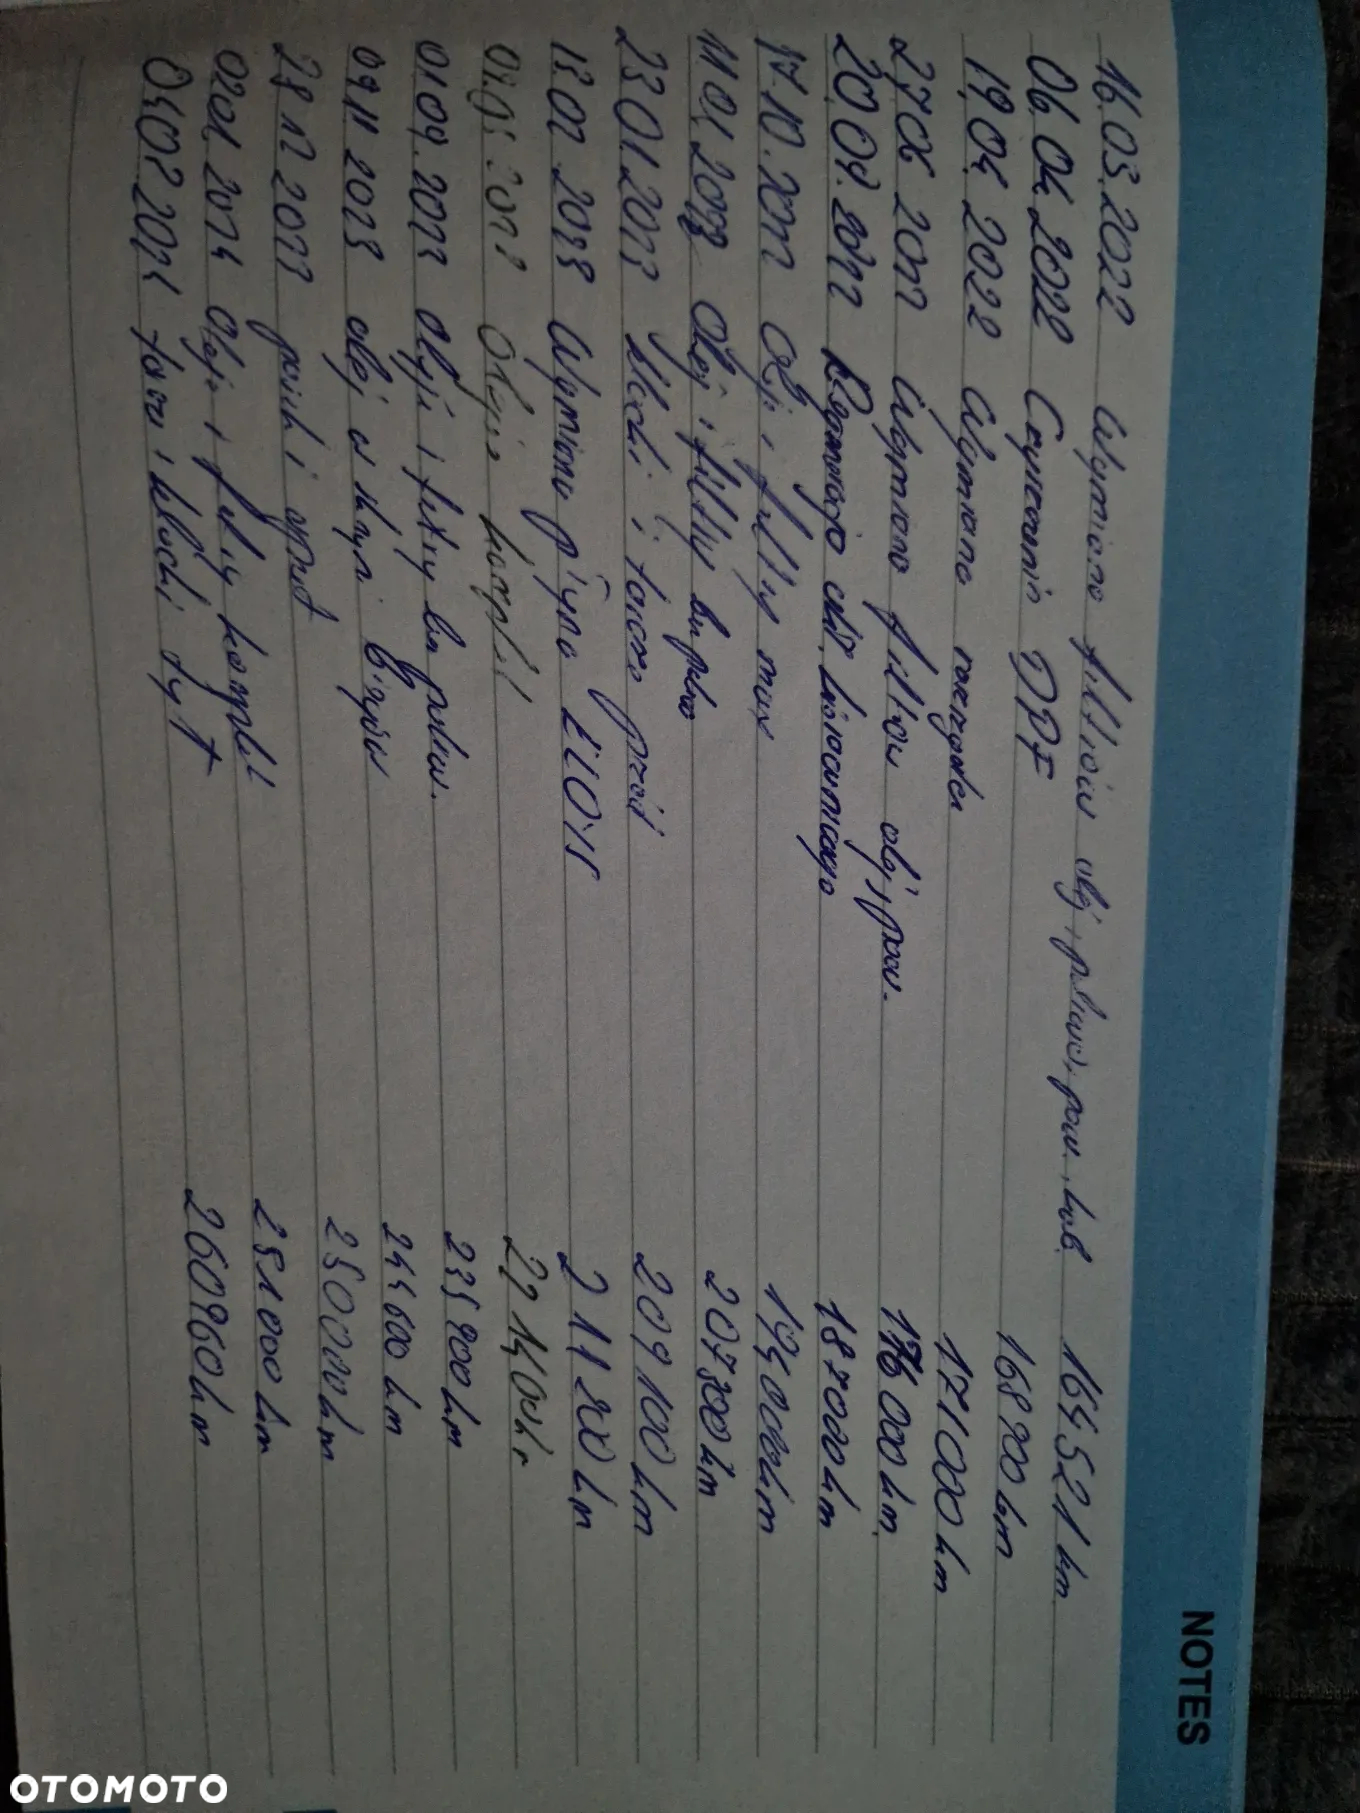 NOTES
16.03.2022 Wymiana filtrów olej, paliwa, pow., kab. 164521 km
06.04.2022 Czyszczenie DPF 168900 km
19.04.2022 Wymiana rozrządu 171000 km
27.06.2022 Wymiana filtrów olej, pow. 176000 km
20.09.2022 187000 km
17.10.2022 Olej i filtry 194000 km
11.01.2023 Olej i filtry bez paliwa 207800 km
23.01.2023 klocki i tarcze przód 209100 km
13.02.2023 Wymiana płynu 211200 km
2023 Olej komplet 221400 km
01.09.2023 Olej i filtry bez paliwa. 235900 km
09.11.2023 olej w skrzyni biegów 244600 km
28.12.2023 250000 km
02.01.2024 Olej i filtry komplet 251000 km
04.08.2024 tarcze i klocki tył 260960 km
OTOMOTO